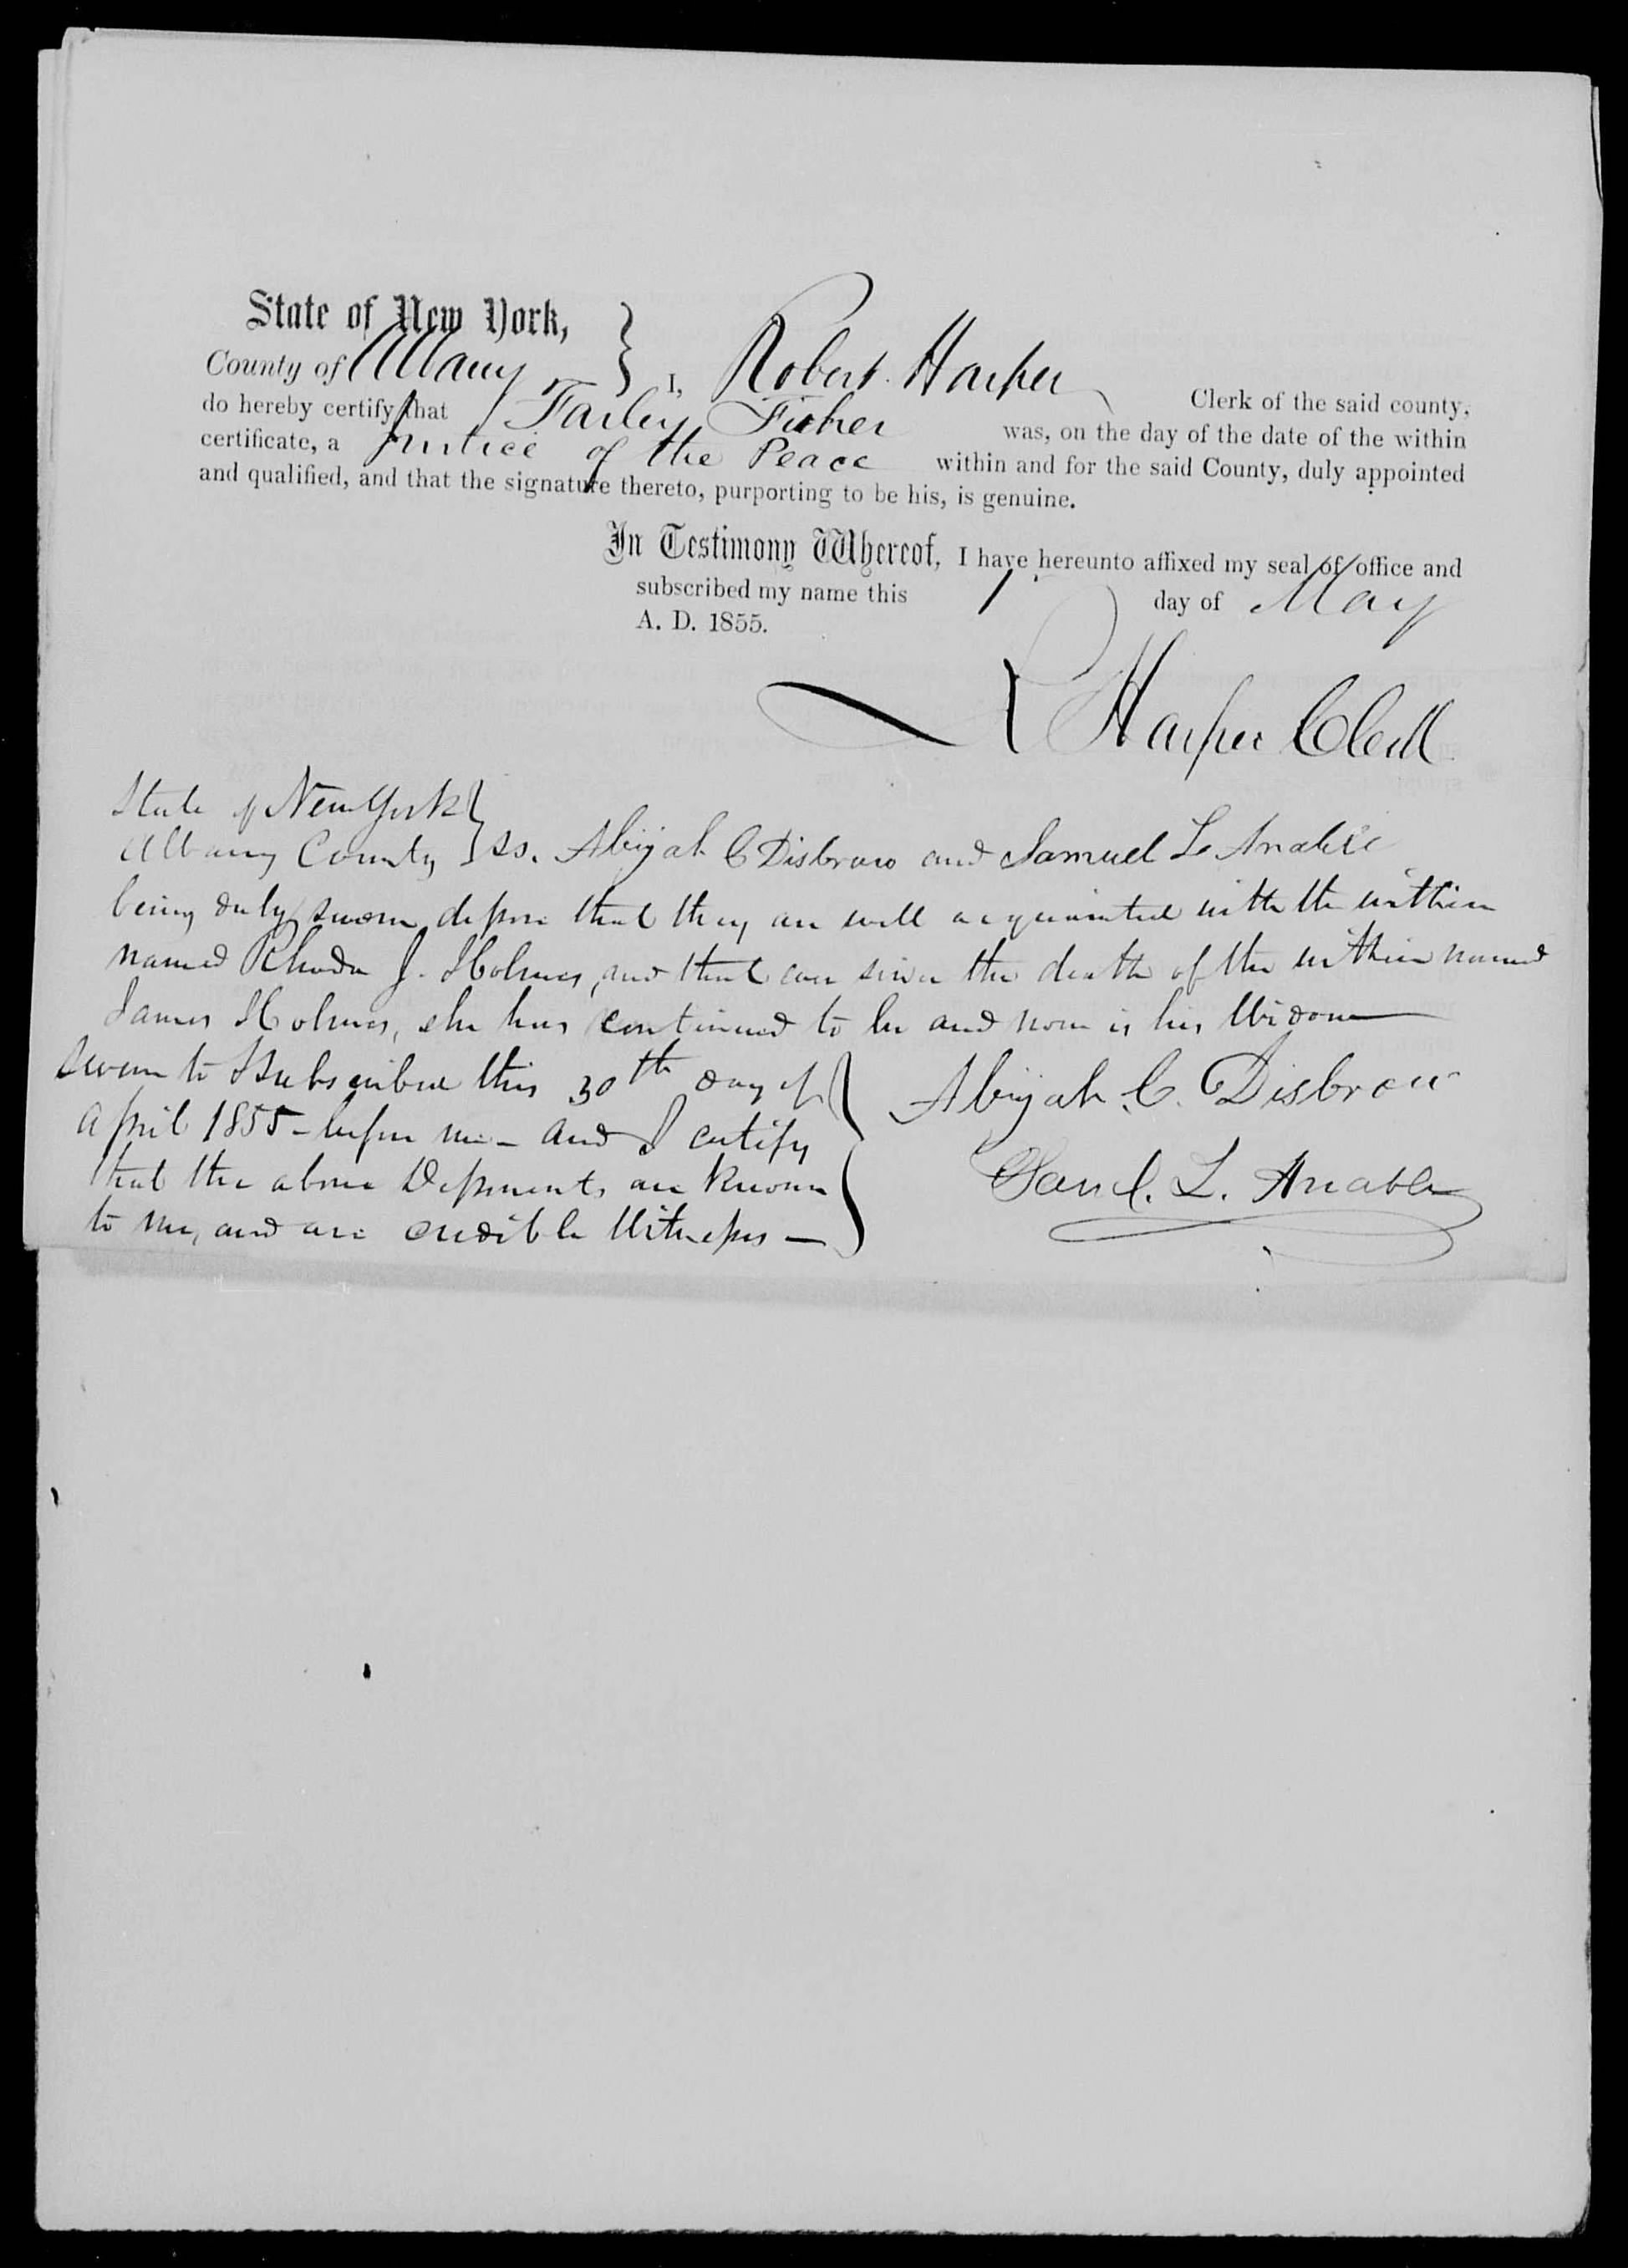 State of New York,
County of Albany } I, Robert Harper Clerk of the said county,
do hereby certify that Farley Fisher was, on the day of the date of the within
certificate, a Justice of the Peace within and for the said County, duly appointed
and qualified, and that the signature thereto, purporting to be his, is genuine.
In Testimony Whereof, I have hereunto affixed my seal of office and
subscribed my name this 1 day of May
A. D. 1855.
R Harper Clerk
State of New York }
Albany County } ss. Abijah C Disbrow and Samuel L Anable
being duly sworn depose that they are well acquainted with the within
named Rhoda J. Holmes, and that ever since the death of the within named
James Holmes, she has continued to be and now is his Widow
Sworn to & Subscribed this 30th day of
April 1855 - before me - and I certify
that the above Deponents are Known
to me, and are credible Witnesses —
Abijah C. Disbrow
Saml. L. Anable